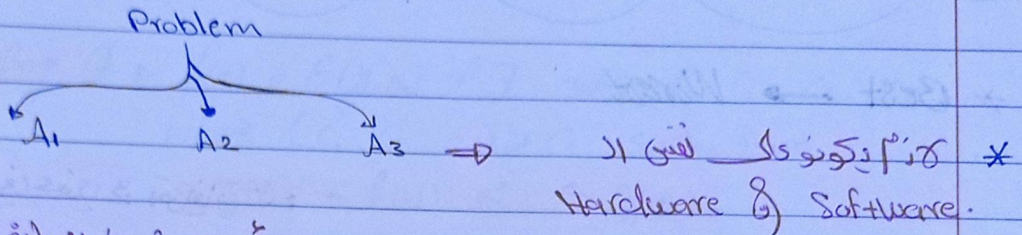 Problem
A1 A2 A3 ⇒ * لازم يكونو على نفس ال
Hardware & Software.